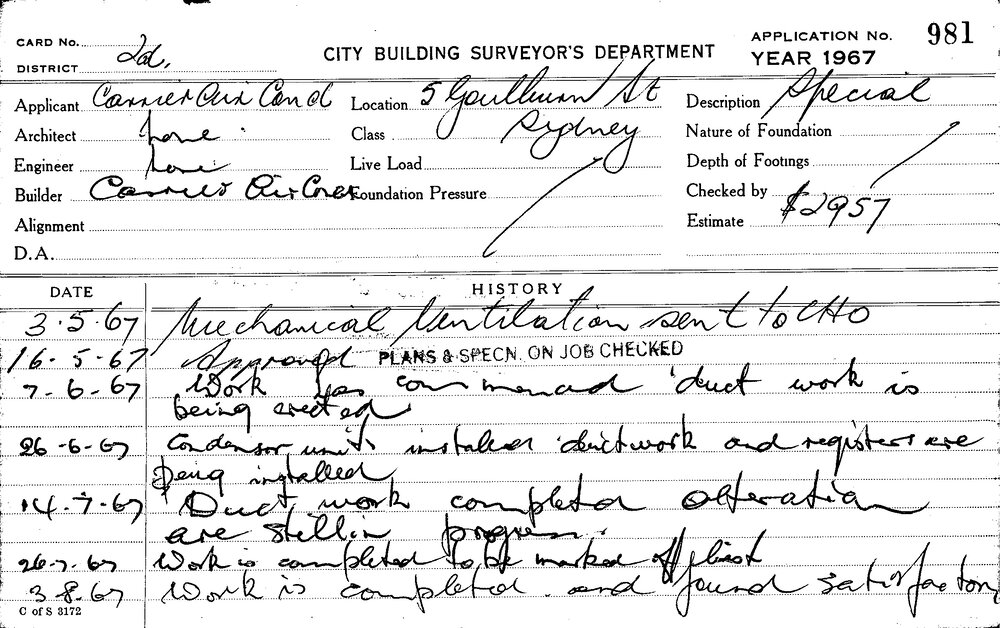 CARD No. 2d.
DISTRICT
CITY BUILDING SURVEYOR'S DEPARTMENT
APPLICATION No. 981
YEAR 1967
Applicant Carrier Air Cond Location 5 Goulburn St Description Special
Architect none Class Sydney Nature of Foundation
Engineer none Live Load Depth of Footings
Builder Carrier Air Cond Foundation Pressure Checked by
Alignment Estimate $2957
D.A.
DATE HISTORY
3.5.67 Mechanical Ventilation sent to CHO
16-5-67 Approved PLANS & SPECN. ON JOB CHECKED
7-6-67 Work has commenced duct work is
being erected
26-6-67 Condensor unit installed ductwork and registers are
being installed
14.7.67 Duct work completed alteration
are still in progress.
26.7.67 Work is completed to be marked off list
3.8.67 Work is completed and found satisfactory
C of S 3172